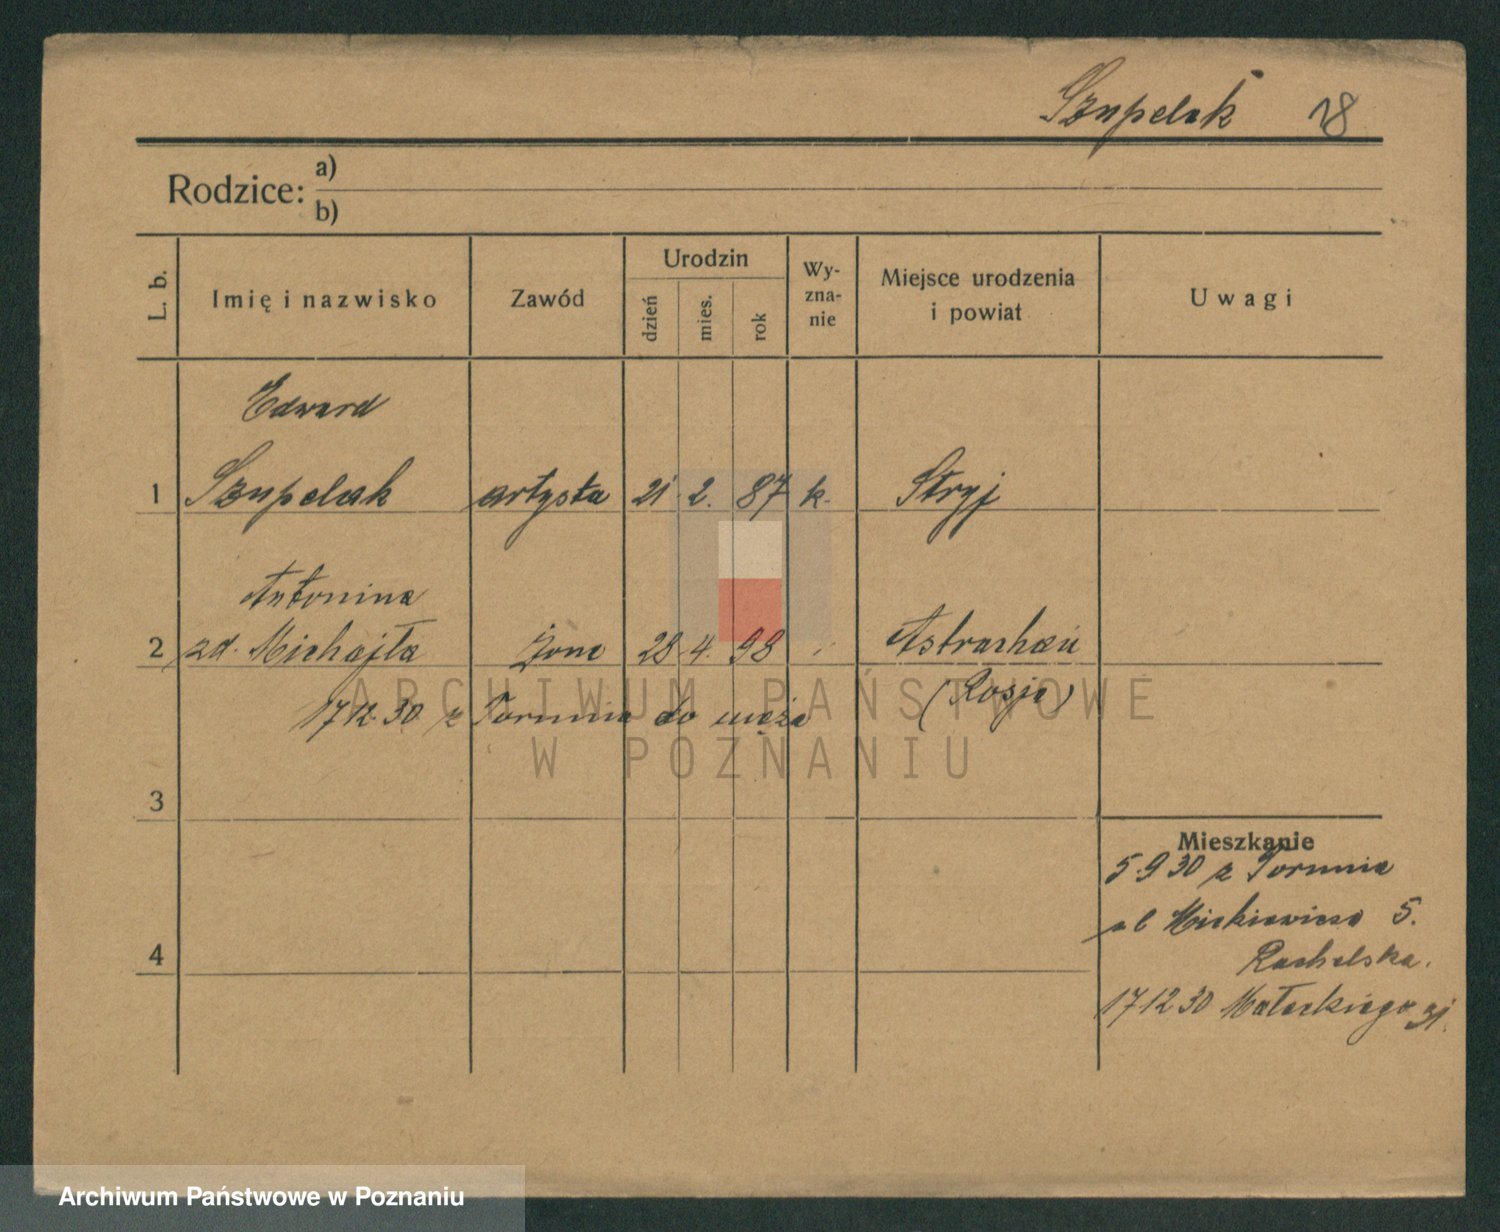 Szupelak 28
Rodzice: a)
b)
L. b. Imię i nazwisko Zawód Urodzin dzień mies. rok Wy-zna-nie Miejsce urodzenia i powiat Uwagi
Edward
1 Szupelak artysta 21 2. 87 k. Stryj
Antonina
2 zd. Michajła żona 28. 4. 98 Astrachań
(Rosja)
17 12. 30 z Torunia do męża
ARCHIWUM PAŃSTWOWE
W POZNANIU
3
Mieszkanie
5. 9 30 z Torunia
Mickiewicza 5.
4
Rachelska.
17 12 30 Małeckiego 31.
Archiwum Państwowe w Poznaniu